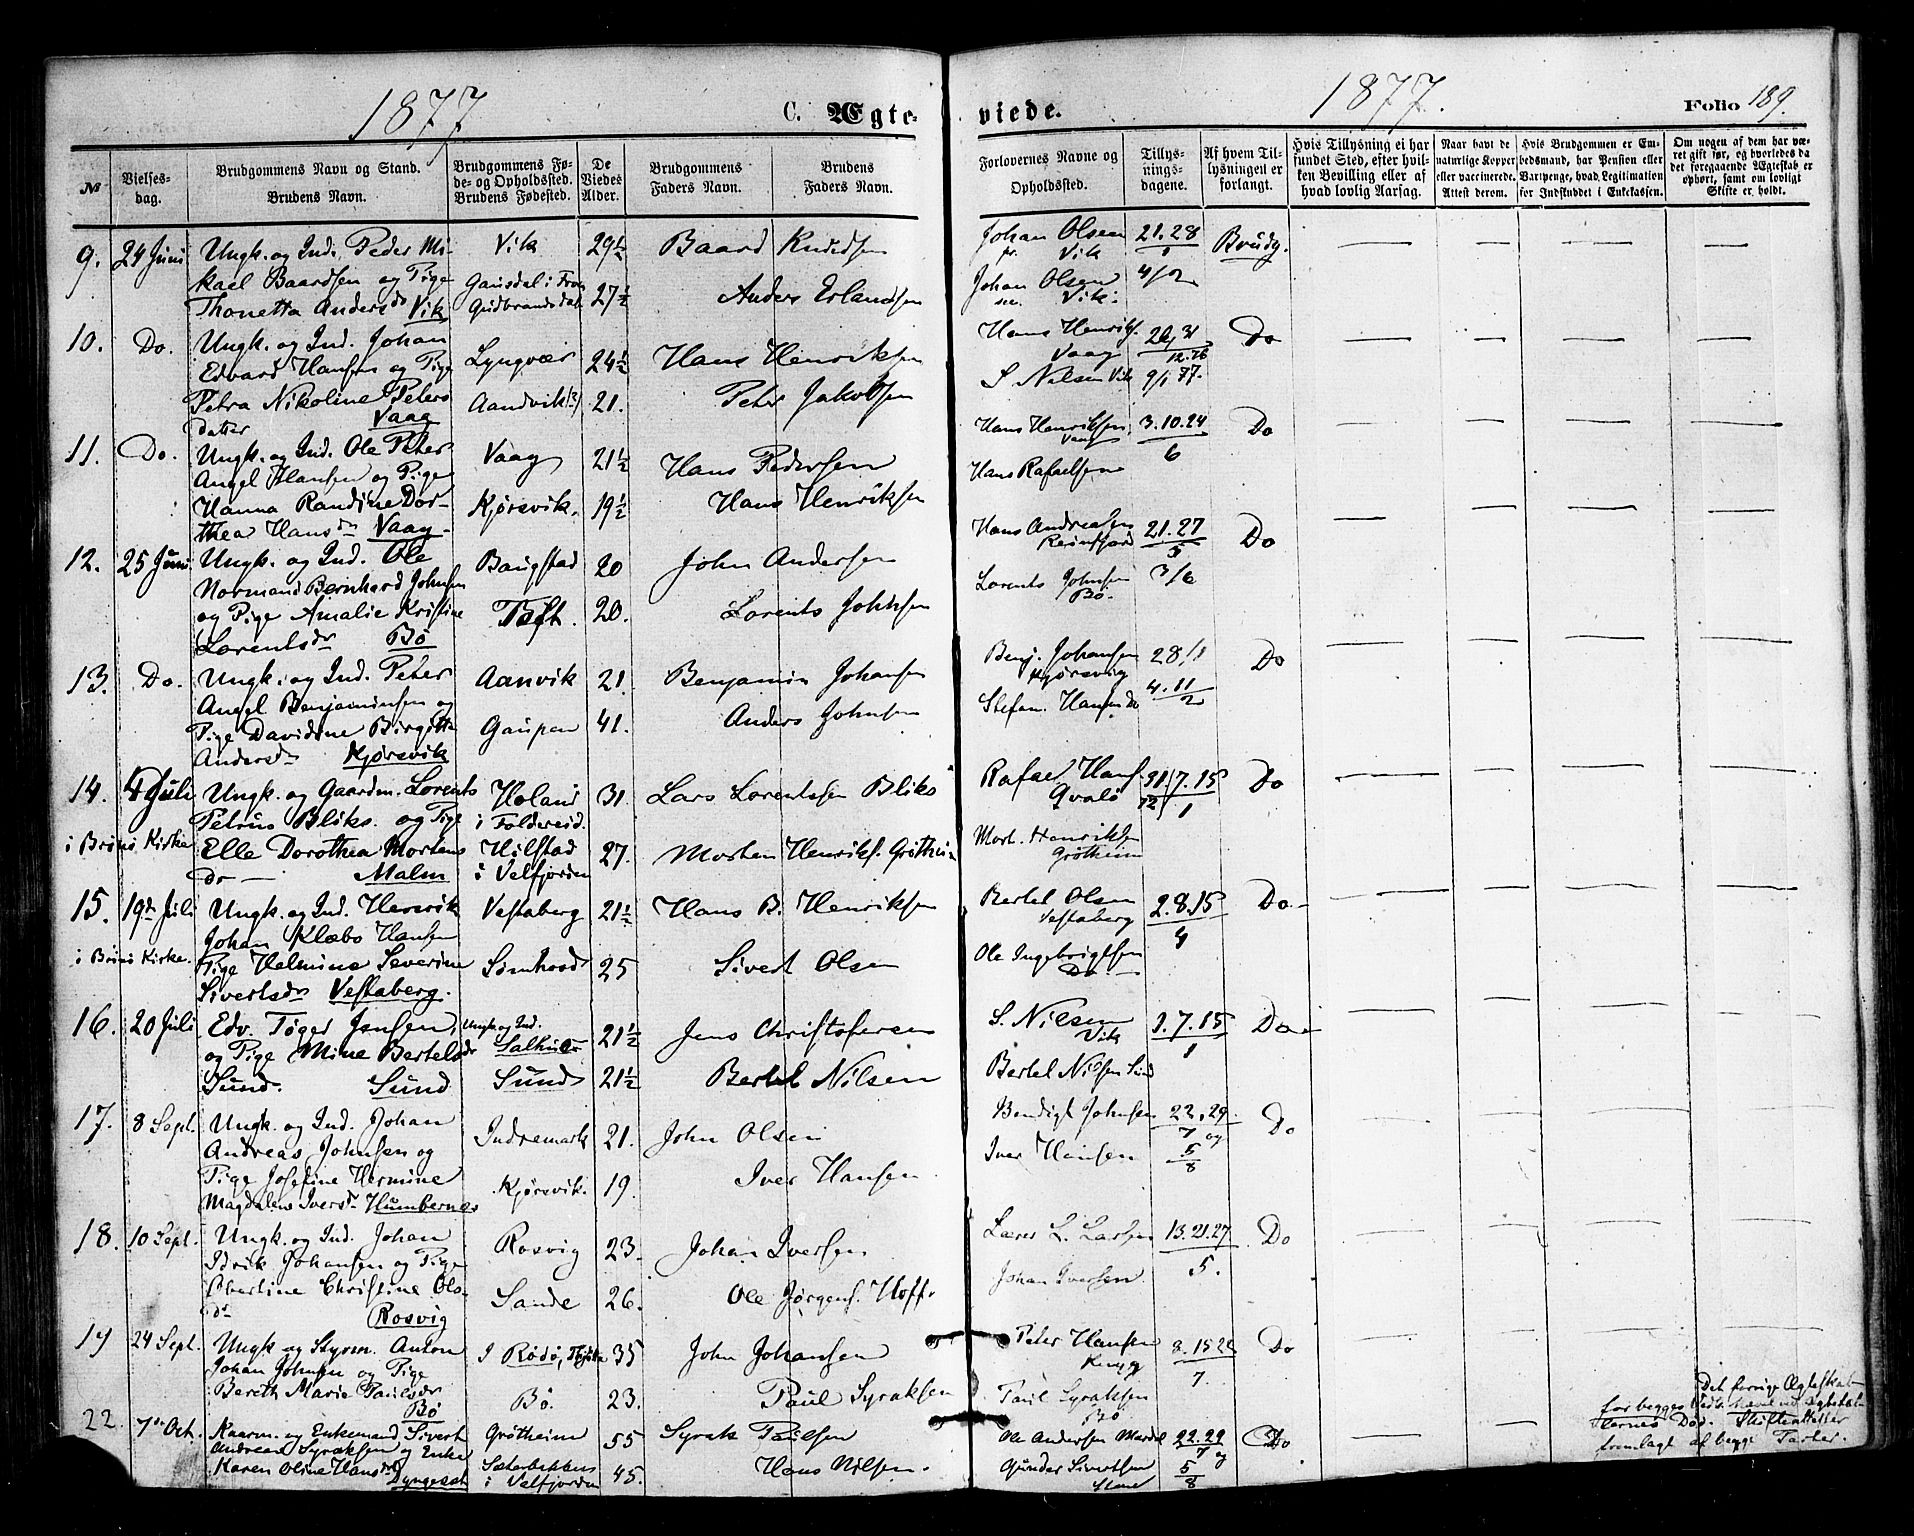 1877
C. Ægte-
viede.
1877.
Folio 189.
№
Vielses-
dag.
Brudgommens Navn og Stand.
Brudens Navn.
Brudgommens Fø-
de- og Opholdssted.
Brudens Fødested.
De
Viedes
Alder.
Brudgommens
Faders Navn.
Brudens
Faders Navn.
Forlovernes Navne og
Opholdssted.
Tillys-
nings-
dagene.
Af hvem Til-
lysningen er
forlangt.
Hvis Tillysning ei har
fundet Sted, efter hvil-
ken Bevilling eller af
hvad lovlig Aarsag.
Naar havt de
naturlige Kopper
eller vaccinerede.
Attest derom.
Hvis Brudgommen er Em-
bedsmand, har Pension eller
Vartpenge, hvad Legitimation
for Indskuddet i Enkekassen.
Om nogen af dem har væ-
ret gift før, og hvorledes da
det foregaaende Ægteskab er
ophørt, samt om lovligt
Skifte er holdt.
9. 24 Juni Ungk. og Ind. Peder Mi- Vik 29½ Baard Knudsen Johan Olsen 21. 28 Brudg.
jr. Vik 1
kael Baardsen og Pige Gausdal i Fron Johan Olsen 4/2
Thonetta Andersdr Vik Gudbrandsdal 27½ Anders Erlandsen sen. Vik.
10. Do. Ungk. og Ind. Johan Lyngvær 24½ Hans Henriksen Hans Henriks. Do
Edvard Hansen og Pige Vaag 12.76
Petra Nikoline Peters Aandvik 21. Peter Jakobsen S. Nilsen Vik 9/1 77.
datter Vaag
11. Do. Ungk. og Ind. Ole Peter Vaag 21½ Hans Pedersen Hans Henriksen 3.10.24 Do
Vaag 6
Angel Hansen og Pige Hans Rafaelsen
Hanna Randine Dor- Kjørsvik. 19½ Hans Henriksen
thea Hansdr Vaag
12. 25 Juni Ungk. og Ind. Ole Baugstad 20 John Andersen Hans Andreasen 21.27 Do
Reinfjord 5
Normand Bernhard Johnsen Lorents Johnsen 3/6
og Pige Amalie Kristine Toft. 20. Lorents Johnsen Bø.
Lorentsdr Bø
13. Do. Ungk. og Ind. Peter Aanvik 21. Benjamin Johansen Benj. Johansen 28/1 Do
Kjørsvig 4.11
Angel Benjaminsen og Stefan. Hansen Do 2
Pige Davidine Birgitte Gaupen 41. Anders Johnsen
Andersdr Kjørsvik
14. 4 Juli Ungk. og Gaardm. Lorents Holand 31. Lars Lorentssen Bliks Rafael Hans. 31/12 7.15 Do
Qvalø 1
Petrus Bliks. og Pige i Foldereid.
i Brønø Kirke Elle Dorothea Mortens Hilstad 27. Morten Henriks. Grøtheim Mort. Henriksen
dr Malm i Velfjorden Grøtheim
15. 19de Juli Ungk. og Ind. Henrik Vestaberg 21½ Hans B. Henriksen Bertel Olsen 2.8.15 Do
Vestaberg 4
Johan Klæbo Hansen
i Brønø Kirke. Pige Helmine Severine Sømhovd 25 Sivert Olsen Ole Ingebrigtsen
Sivertsdr Vestaberg. Do.
16. 20 Juli Edv. Tøger Jensen, Ungk og Ind. 21½ Jens Christofersen S. Nilsen 1.7.15 Do
Vik 1
og Pige Mine Bertelsdr Salhus
Sund. Sund Sund 21½ Bertel Nilsen Bertel Nilsen Sund
17. 8 Sept. Ungk. og Ind. Johan Indremark 21. John Olsen Bendigt Johnsen 22.29 Do
7 og
Andreas Johnsen og Iver Hansen 5
8
Pige Josefine Hermine Kjørsvik. 19. Iver Hansen
Magdalena Iversdr Humbernæs
18. 10 Sept. Ungk. og Ind. Johan Rosvig 23. Johan Iversen Lærer L. Larsen 13.21.27 Do
5.
Idrik Johansen og Pige Johan Iversen
Obertine Christine Ols- Sande 26. Ole Jørgens. Hoff.
dr Rosvig
19 24 Sept. Ungk og Styrm. Anton I Rødø, 35 John Johansen Peter Hansen 8. 15 22 Do
7.
Johan Johnsen og Pige
Bereth Marie Paulsdr Bø. 23. Paul Syraksen Paul Syraksen
Bø Bø
22. 7de Oct. Kaarm. og Enkemand Sivert Grøtheim 55 Syrak Paulsen Ole Andersen Mardal 22.29 Do
7 og
Andreas Syraksen og Enke
Karen Oline Hansdr Sæterbakken 45. Hans Nilsen. Gunder Sivertsen 5
Dyngeseth i Velfjorden 8
Det forrige Ægteskab
for begges
Død. Skifteattester
fremlagt af begge Parter.